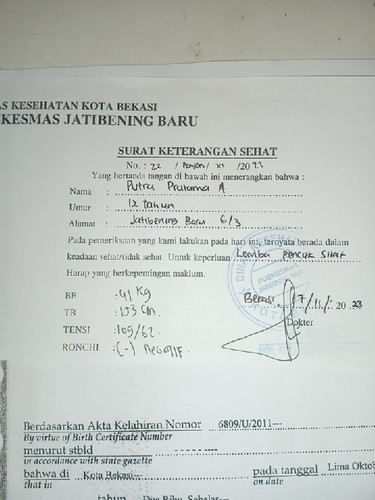 AS KESEHATAN KOTA BEKASI
KESMAS JATIBENING BARU
SURAT KETERANGAN SEHAT
No. : 22 / / XI /2023
Yang bertanda tangan di bawah ini menerangkan bahwa :
Nama : Putra Pratama A
Umur : 12 tahun
Alamat : Jatibening Baru 6/3
Pada pemeriksaan yang kami lakukan pada hari ini, ternyata berada dalam
keadaan sehat/tidak sehat. Untuk keperluan Lomba Pencak Silat
Harap yang berkepentingan maklum.
BB : 41 Kg
Bekasi, 17/11/ 20 23
TB : 153 cm
Dokter
TENSI : 109/62
RONCHI : (-) Negatif
Berdasarkan Akta Kelahiran Nomor 6809/U/2011---
By virtue of Birth Certificate Number
menurut stbld -------
in accordance with state gazette
bahwa di Kota Bekasi--- pada tanggal Lima Oktober
that in on date
tahun Dua Ribu Sebelas---